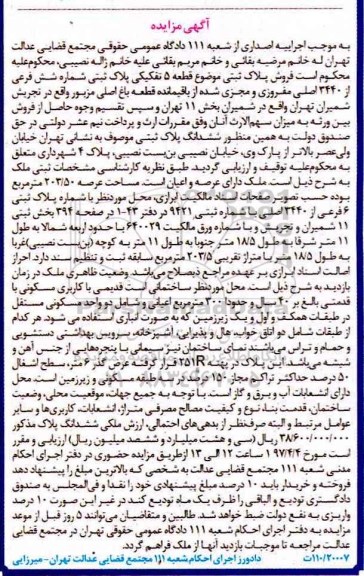 آگهی مزایده
به موجب اجراییه اصداری از شعبه ۱۱۱ دادگاه عمومی حقوقی مجتمع قضایی عدالت
تهران له خانم مرضیه بقائی و خانم مریم بقائی علیه خانم ژاله نصیبی، محکوم‌علیه
محکوم است فروش پلاک ثبتی موضوع قطعه ۵ تفکیکی پلاک ثبتی شماره شش فرعی
از ۳۴۴۰ اصلی مفروزی و مجزی شده از باقیمانده قطعه باغ اصلی مزبور واقع در تجریش
شمیران تهران واقع در شمیران بخش ۱۱ تهران و سپس تقسیم وجوه حاصل از فروش
بین ورثه به میزان سهم‌الارث آنان وفق مقررات ارث و پرداخت نیم عشر دولتی در حق
صندوق دولت به همین منظور ششدانگ پلاک ثبتی موصوف به نشانی تهران خیابان
ولی‌عصر بالاتر از پارک وی، خیابان نصیبی بن‌بست نصیبی، پلاک ۴ شهرداری متعلق
به محکوم‌علیه توقیف و ارزیابی گردید. طبق نظریه کارشناسی مشخصات ثبتی ملک
به شرح ذیل است. ملک دارای عرصه و اعیان است. مساحت عرصه ۲۰۳/۵۰ مترمربع
بوده حسب تصویر صفحات اسناد مالکیت ابرازی، محل موردنظر با شماره پلاک ثبتی
۶ فرعی از ۳۴۴۰ اصلی به شماره ثبتی ۹۴۳۱ در دفتر ۴۳-۱ در صفحه ۳۹۴ بخش ثبتی
۱۱ شمیران و تجریش و با شماره ورق مالکیت ۶۴۰۰۲۹ با حدود اربعه شمالا به طول
۱۱ متر شرقا به طول ۱۸/۵ متر جنوبا به طول ۱۱ متر به کوچه (بن‌بست نصیبی) غربا
به طول ۱۸/۵ متر با متراژ تقریبی ۲۰۳/۵ مترمربع سابقه ثبت و تنظیم سند دارد. احراز
اصالت اسناد ابرازی بر عهده مراجع ذیصلاح می‌باشد. وضعیت ظاهری ملک در زمان
بازدید به شرح ذیل است. محل موردنظر ساختمانی است قدیمی با کاربری مسکونی با
قدمتی بالغ بر ۴۰ سال و حدودا ۳۰۰ مترمربع اعیانی و شامل دو واحد مسکونی مستقل
در طبقات همکف و اول و یک زیرزمین که به صورت انباری استفاده می‌شود. هر کدام
از طبقات شامل دو اتاق خواب، هال و پذیرایی، آشپزخانه، سرویس بهداشتی دستشویی
و حمام و تراس می‌باشند. نمای ساختمان نیز سیمانی با پنجره‌هایی از جنس آهن و
شیشه می‌باشد. این پلاک در پهنه R۲۵۱ قرار گرفته عرض گذر ۶ متر، سطح اشغال
۵۰ درصد حداکثر تراکم مجاز ۱۵۰ درصد در سه طبقه مسکونی و زیرزمین است. محل
دارای انشعابات آب و برق و گاز است. با توجه به جمیع جهات، موقعیت محلی، وضعیت
ساختمان، قدمت بنا، نوع و کیفیت مصالح مصرفی، متراژ، انشعابات، کاربری‌ها و سایر
عوامل مرتبط و البته صرف‌نظر از بدهی‌های احتمالی، ارزش ملکی ششدانگ پلاک مذکور
۳۸/۶۰۰/۰۰۰/۰۰۰ ریال (سی و هشت میلیارد و ششصد میلیون ریال) ارزیابی و مقرر
است مورخ ۹۷/۴/۴ ۱ ساعت ۱۲ الی ۱۳ ازطریق مزایده حضوری در دفتر اجرای احکام
مدنی شعبه ۱۱۱ مجتمع قضایی عدالت به شخصی که بالاترین مبلغ را پیشنهاد دهد
فروخته و خریدار باید ۱۰ درصد مبلغ پیشنهادی خود را نقدا و فی‌المجلس به صندوق
دادگستری تودیع و الباقی را ظرف یک ماه تودیع کند در غیر این صورت ۱۰ درصد
واریزی به نفع دولت ضبط خواهد شد. طالبین و متقاضیان می‌توانند ۵ روز قبل از موعد
مزایده به دفتر اجرای احکام شعبه ۱۱۱ دادگاه عمومی حقوقی تهران در مجتمع قضایی
عدالت مراجعه تا موجبات بازدید آنها از ملک فراهم گردد.
۱۱۰/۳۰۰۰۷ت دادورز اجرای احکام شعبه ۱۱۱ مجتمع قضایی عدالت تهران - میرزایی